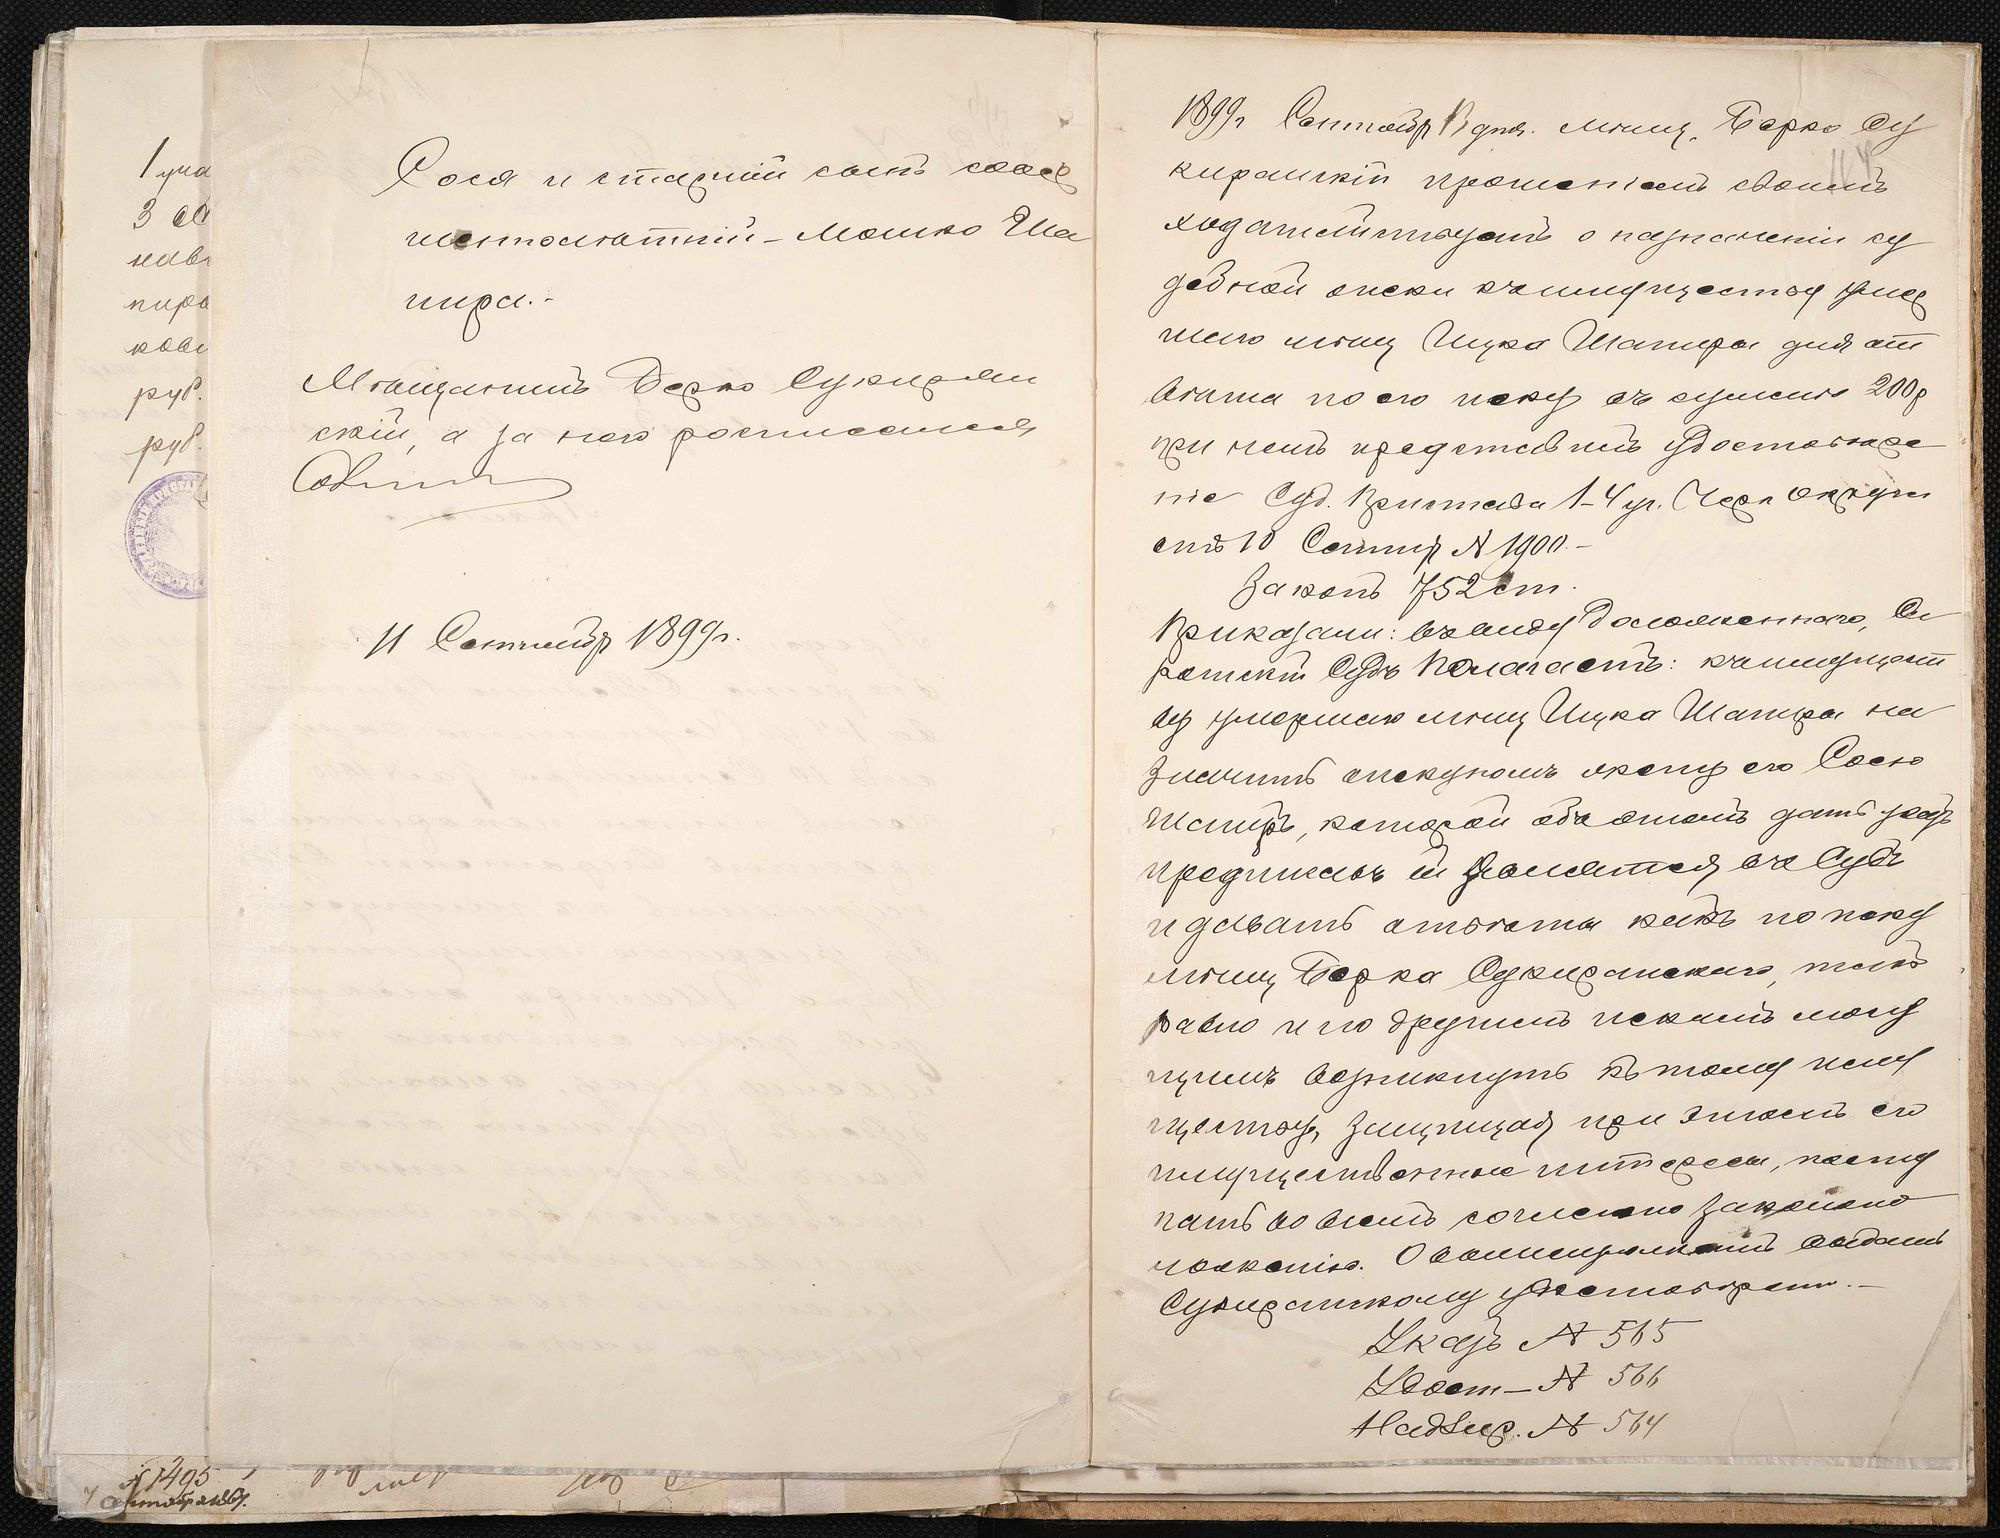 1 уча
3 са
навс
пиро
ковс
руб.
руб.
Сося и старшій сынъ совер
шеннолѣтній - Мошко Ша
пира.-
Мѣщанинъ Берко Сукирян
скій, а за него росписался
11 Сентября 1899 г.
1899 г Сентября дня. мѣщ. Берко Су
кирянскій прошеніемъ своимъ
ходатайствуетъ о назначеніи су
дебной опеки къ имуществу умер
шаго мѣщ Ицка Шапиры для от
вѣта по его иску въ суммѣ 200 р
при чемъ представилъ удостовѣре
ніе Суд. Пристава 1-4 уч. округа
отъ 10 Сентяб № 1900.-
Законъ 752 ст.
Приказали: въ виду доложеннаго, Си
ротскій Судъ полагаетъ: къ имущест
ву умершаго мѣщ Ицка Шапиры на
значить опекуномъ жену его Сосю
Шапиръ, которой объ этомъ дать указъ
предписавъ ей являться въ Судъ
и давать отвѣты какъ по иску
мѣщ Берка Сукирянскаго, такъ
равно и по другимъ искамъ могу
щимъ возникнуть къ тому иму
ществу, защищая при этомъ его
имущественные интересы, посту
пать во всемъ согласно законопо
ложенію. О вышеизложенномъ выдать
Сукирянскому удостовѣреніе.-
Указъ № 565
Удост - № 566
Надзир. № 564
№ 1495